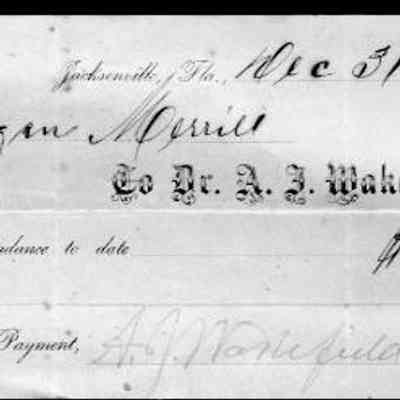 Jacksonville, Fla., Dec 31
gan Merrill
To Dr. A. J. Wake
ndance to date
Payment, A. J. Wakefield